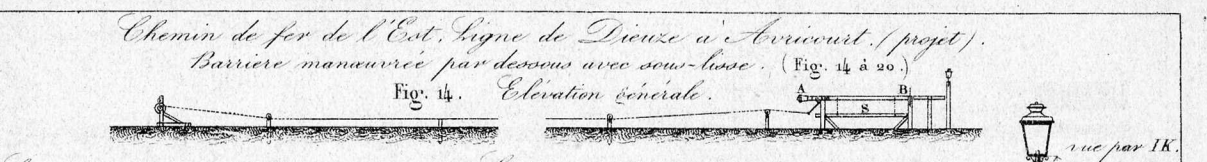 Chemin de fer de l'Est. Ligne de Dieuze à Avricourt. (projet).
Barrière manœuvrée par dessous avec sous-lisse. (Fig. 14 à 20.)
Fig. 14. Elévation générale.
A B
S
vue par IK.